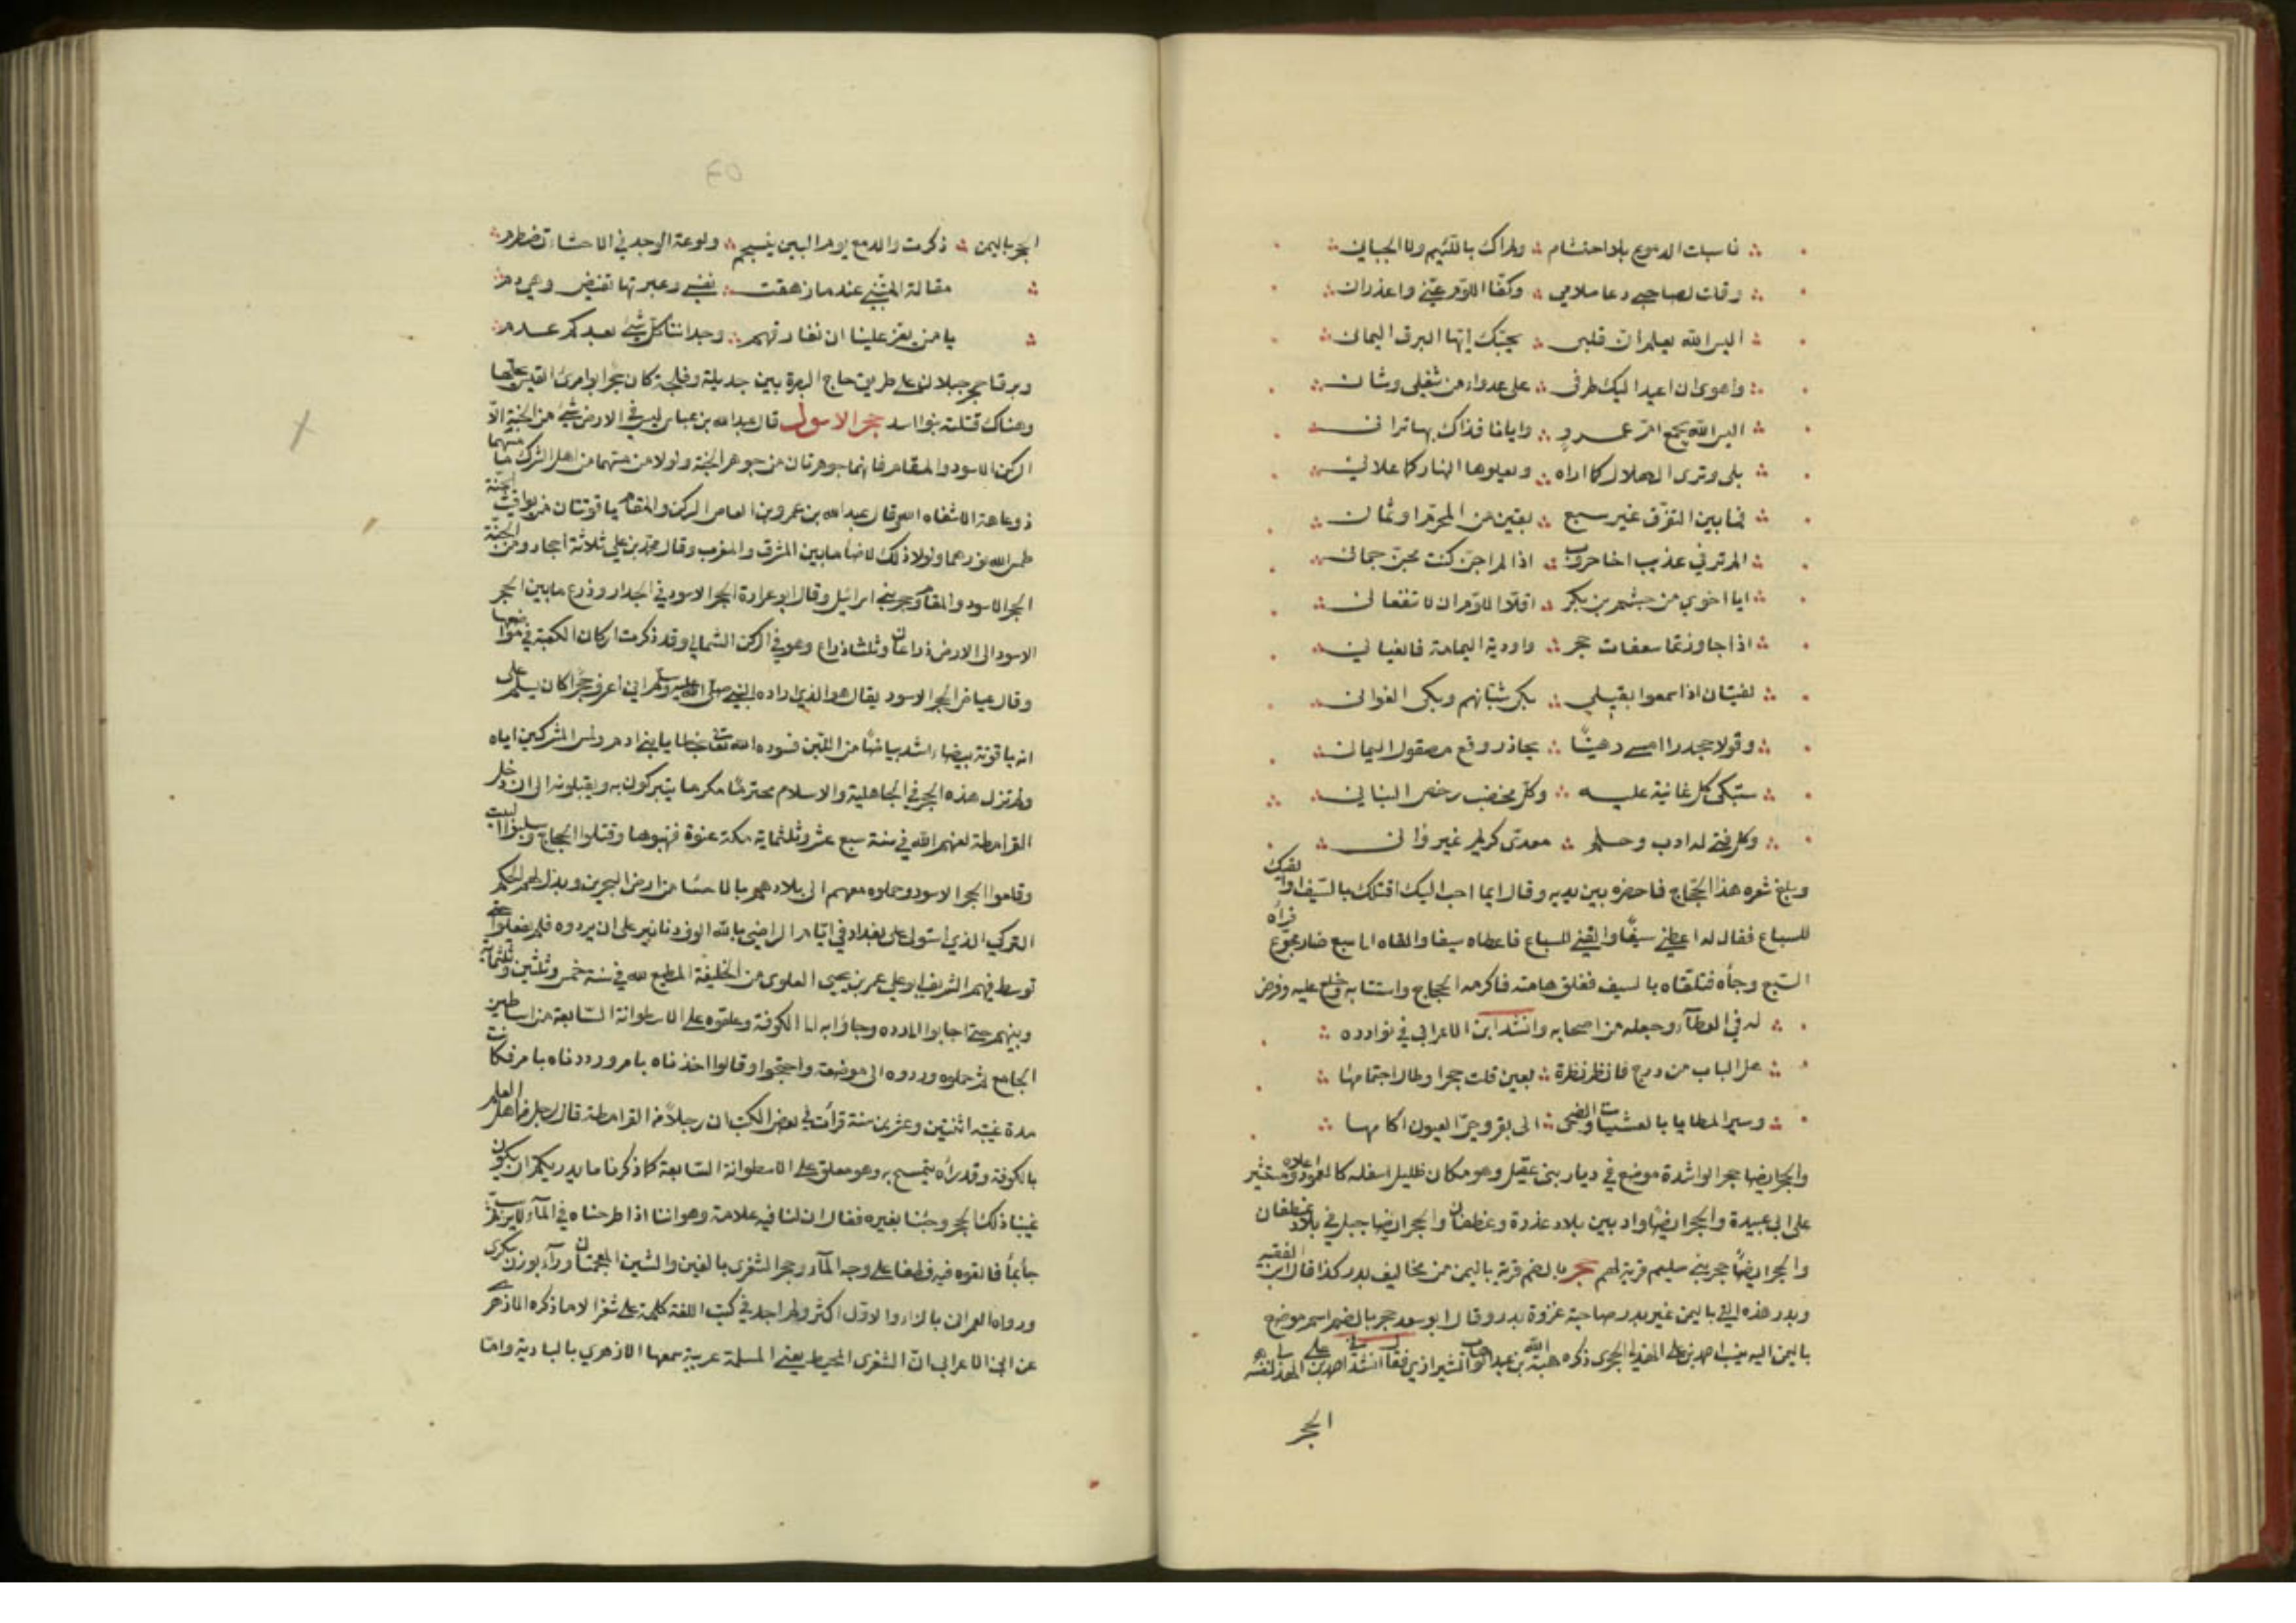 فاسبلت الدموع بلا احتشام ∴ ولم اك باللئيم ولا الجباني
وقلت لصاحبي دعا ملامي ∴ وكفا اللوم عني واعذران
اليس الله يعلم ان قلبي ∴ يحبك ايها البرق اليماني
واهوى ان اعيد اليك طرفي ∴ على عدواء من شغلي وشاني
اليس الله يجمع ام عمرو ∴ وايانا فذاك بها تراني
بلى وترى الهلال كما اراه ∴ ويعلوها النهار كما علاني
فما بين التفرق غير سبع ∴ بقين من المحرم او ثمان
الم ترني عذيت اخا حروب ∴ اذا لم اجن كنت مجن جمان
ايا اخوي من جشم بن بكر ∴ اقلا اللوم ان لا تنفعاني
اذا جاوزتما سعفات حجر ∴ واودية اليمامة فانعياني
لفتيان اذا سمعوا بقيلي ∴ بكى شبانهم وبكى الغواني
وقولا جحدر امسى رهينًا ∴ يحاذر وقع مصقول اليماني
ستبكي كل غانية عليه ∴ وكل مخضب رخص البناني
وكل فتى له ادب وحلم ∴ معدى كريم غير واني
وبلغ شعره هذا الحجاج فاحضره بين يديه وقال ايما احب اليك اقتلك بالسيف او القيك
للسباع فقال له اعطني سيفًا والقني للسباع فاعطاه سيفا والقاه الى سبع ضار مجوع فزأر
السبع وجاءه فتلقاه بالسيف ففلق هامته فاكرمه الحجاج واستتابه وخلع عليه وفرض
له في العطاء وجعله من اصحابه وانشد ابن الاعرابي في نوادره
هل الباب من فانظر نظرة ∴ بعين قلت حجرا وطال احتمامها
وسير المطايا بالعشيات والضحى ∴ الى بقر وحى العيون اكامها
والحجر ايضا حجر الراشدة موضع في ديار بني عقيل وهو مكان ظليل اسفله كالعمود واعلاه منتشر
على ابي عبيدة والحجر ايضًا واد بين بلاد عذرة وغطفان والحجر ايضا جبل في بلاد غطفان
والحجر ايضًا حجر بني سليم قرية لهم حجر بالضم قرية باليمن من مخاليف بدر كذا قال ابن الفقيه
وبدر هذه التي باليمن غير بدر صاحبة غزوة بدر وقال ابو سعد حجر بالضم اسم موضع
باليمن اليه ينسب احمد بن علي الهذلي الحجري ذكره هبة الله بن عبد الوارث الشيرازي فقال انشدني احمد بن علي الهذلي لنفسه
الحجر
الحجر باليمن ∴ ذكرت والدمع يوم البين ينسجم ∴ ولوعة الوجد في الاحشاء تضطرم
مقالة المتنبي عندما زهقت ∴ نفسي وعبرتها تفيض وهي دم
يا من يعز علينا ان نفارقهم ∴ وجداننا كل شيء بعدكم عدم
وبرقا حجر جبلان على طريق حاج البصرة بين جديلة وفلجة كان حجر ابو امرئ القيس يحلهما
وهناك قتلته بنو اسد حجر الاسود قال عبد الله بن عباس ليس في الارض شيء من الجنة الا
الركن الاسود والمقام فانهما جوهرتان من جوهر الجنة ولولا من مسهما من اهل الشرك ما مسهما
ذو عاهة الا شفاه الله وقال عبد الله بن عمرو بن العاص الركن والمقام ياقوتتان من يواقيت الجنة
طمس الله نورهما ولولا ذلك لاضاء ما بين المشرق والمغرب وقال محمد بن علي ثلاثة احجار من الجنة
الحجر الاسود والمقام وحجر بني اسرائيل وقال ابو عرادة الحجر الاسود في الجدار وذرع ما بين الحجر
الاسود الى الارض ذراعان وثلثا ذراع وهو في الركن الشمالي وقد ذكرت اركان الكعبة في مواضعها
وقال عياض الحجر الاسود يقال هو الذي اراده النبي صلى الله عليه وسلم اني اعرف حجرًا كان يسلم على
انه ياقوتة بيضاء اشد بياضًا من اللبن فسوده الله تعالى بخطايا بني ادم ولمس المشركين اياه
ولم تزل هذه الحجر في الجاهلية والاسلام محترمًا مكرما يتبركون به ويقبلونه الى ان دخل
القرامطة لعنهم الله في سنة سبع عشر وثلثماية مكة عنوة فنهبوها وقتلوا الحجاج وسلبوا البيت
وقلعوا الحجر الاسود وحملوه معهم الى بلادهم بالاحسا من ارض البحرين وبذل لهم بجكم
التركي الذي استولى على بغداد في ايام الراضي بالله الوف دنانير على ان يردوه فلم يفعلوا حتى
توسط فيهم الشريف ابو علي عمر بن يحيى العلوي من الخليفة المطيع لله في سنة خمس وثلثين وثلثماية
وبينهم حتى اجابوا الى رده وجاؤا به الى الكوفة وعلقوه على الاسطوانة السابعة من اساطين
الجامع ثم حملوه وردوه الى موضعه واحتجوا وقالوا اخذناه بامر ورددناه بامر فكانت
مدة غيبته اثنتين وعشرين سنة قرأت في بعض الكتب ان رجلاً من القرامطة قال لرجل من اهل العلم
بالكوفة وقد رآه يتمسح به وهو معلق على الاسطوانة السابعة كما ذكرنا ما يدريكم ان يكون
غيبنا ذلك الحجر وجئنا بغيره فقال ان لنا فيه علامة وهو اننا اذا طرحناه في الماء لا يرسب ثم
جاء بماء فالقوه فيه فطفا على وجه الماء وحجر الشغرى بالغين والشين المعجمتان وراء بوزن سكرى
ورواه العمراني بالزاء والاول اكثر ولم اجد في كتب اللغة كلمة على شغز الا ما ذكره الازهري
عن ابن الاعرابي ان الشغزى المخيط يعني المسلة عربية سمعها الازهري بالبادية واما